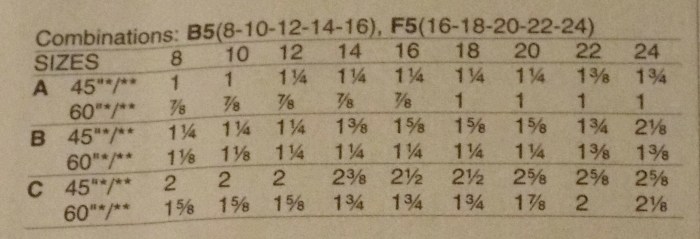 Combinations: B5(8-10-12-14-16), F5(16-18-20-22-24)
SIZES 8 10 12 14 16 18 20 22 24
A 45"*/** 1 1 1¼ 1¼ 1¼ 1¼ 1¼ 1⅜ 1¾
60"*/** ⅞ ⅞ ⅞ ⅞ ⅞ 1 1 1 1
B 45"*/** 1¼ 1¼ 1¼ 1⅜ 1⅝ 1⅝ 1⅝ 1¾ 2⅛
60"*/** 1⅛ 1⅛ 1¼ 1¼ 1¼ 1¼ 1¼ 1⅜ 1⅜
C 45"*/** 2 2 2 2⅜ 2½ 2½ 2⅝ 2⅝ 2⅝
60"*/** 1⅝ 1⅝ 1⅝ 1¾ 1¾ 1¾ 1⅞ 2 2⅛